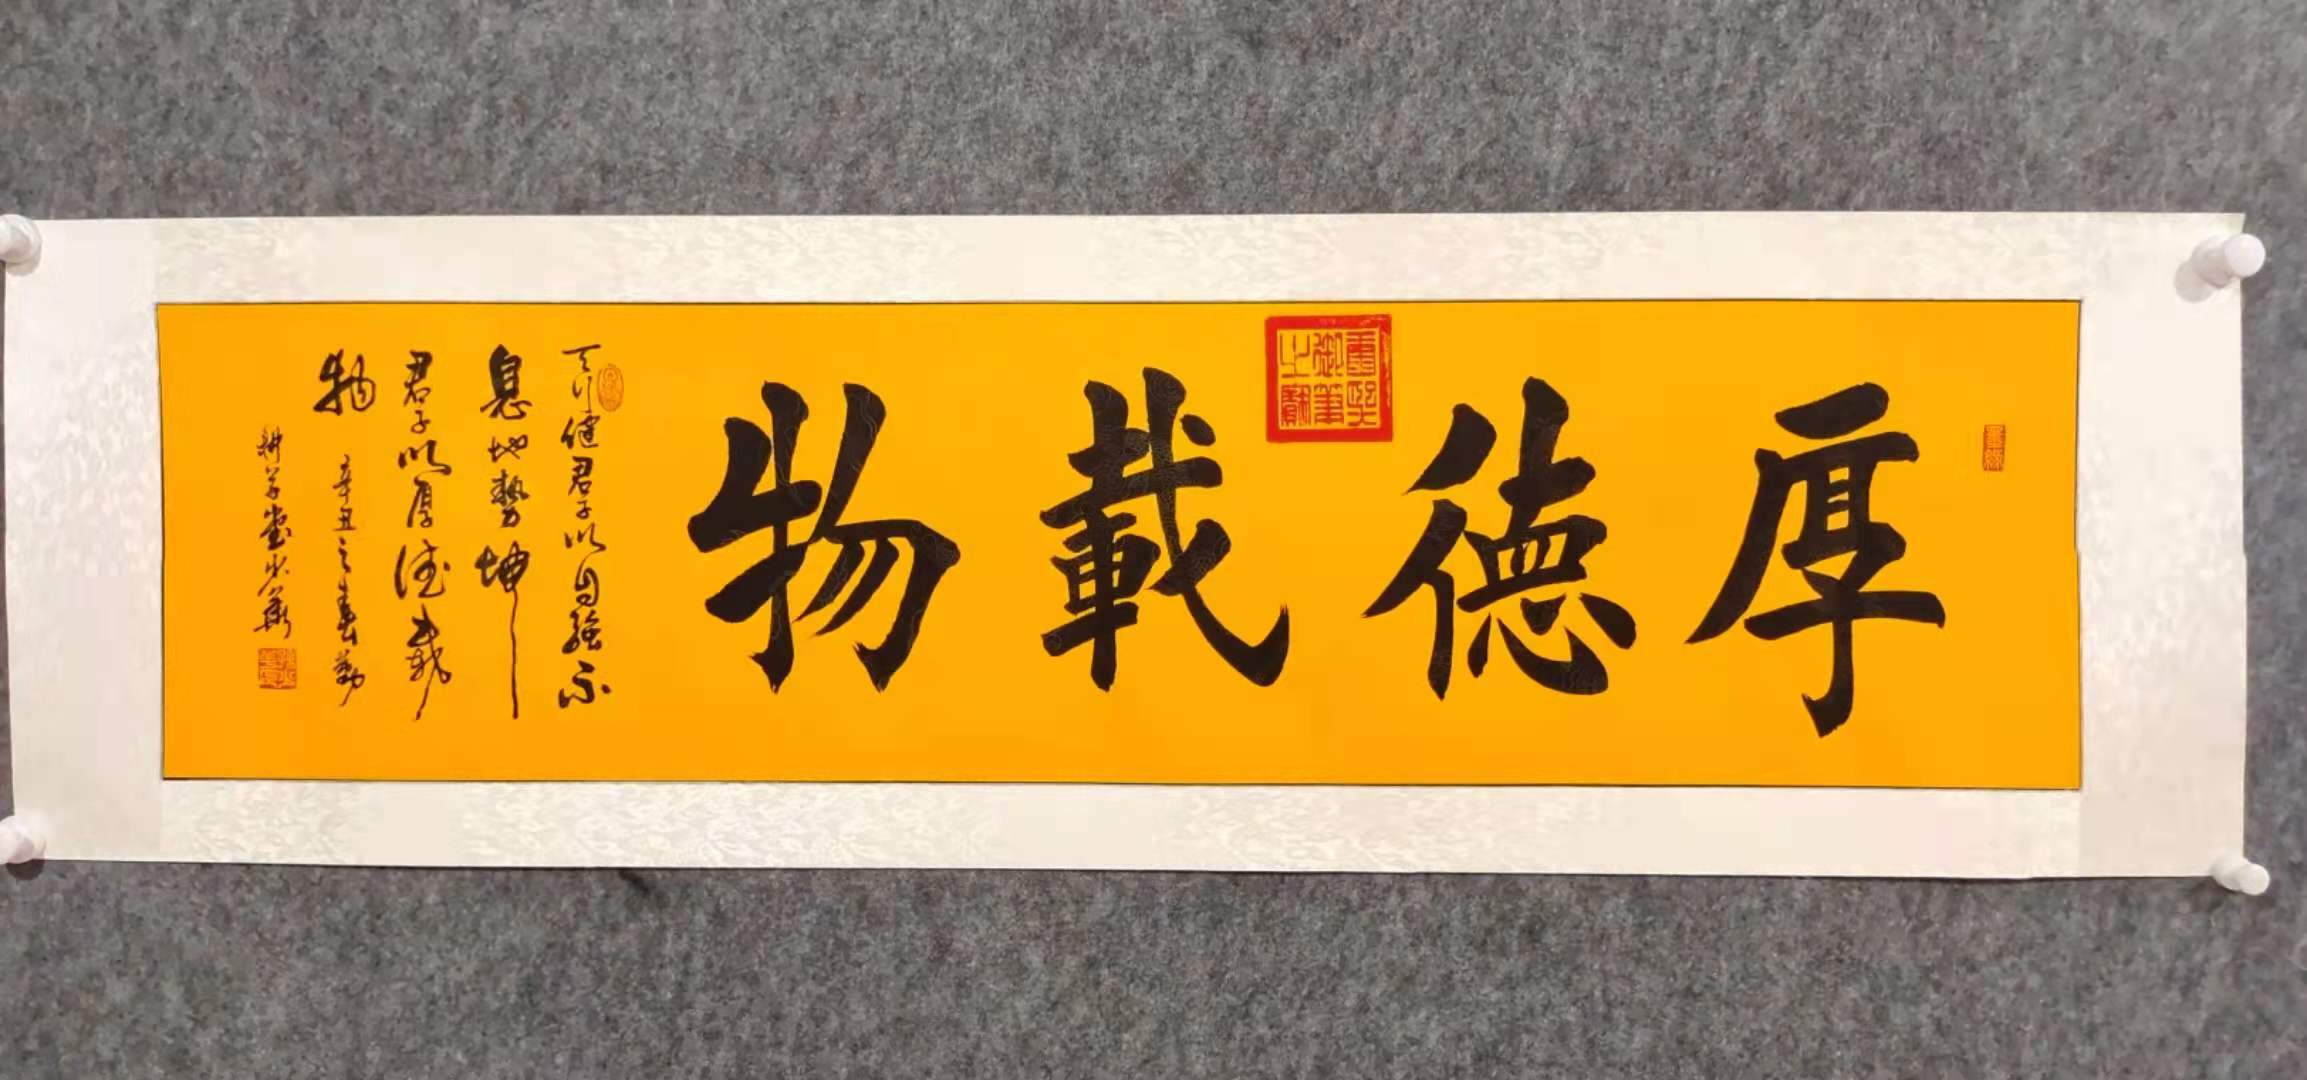 厚德載物
天行健君子以自強不
息地勢坤
君子以厚德載
物
辛丑之春勤
耕草堂永義